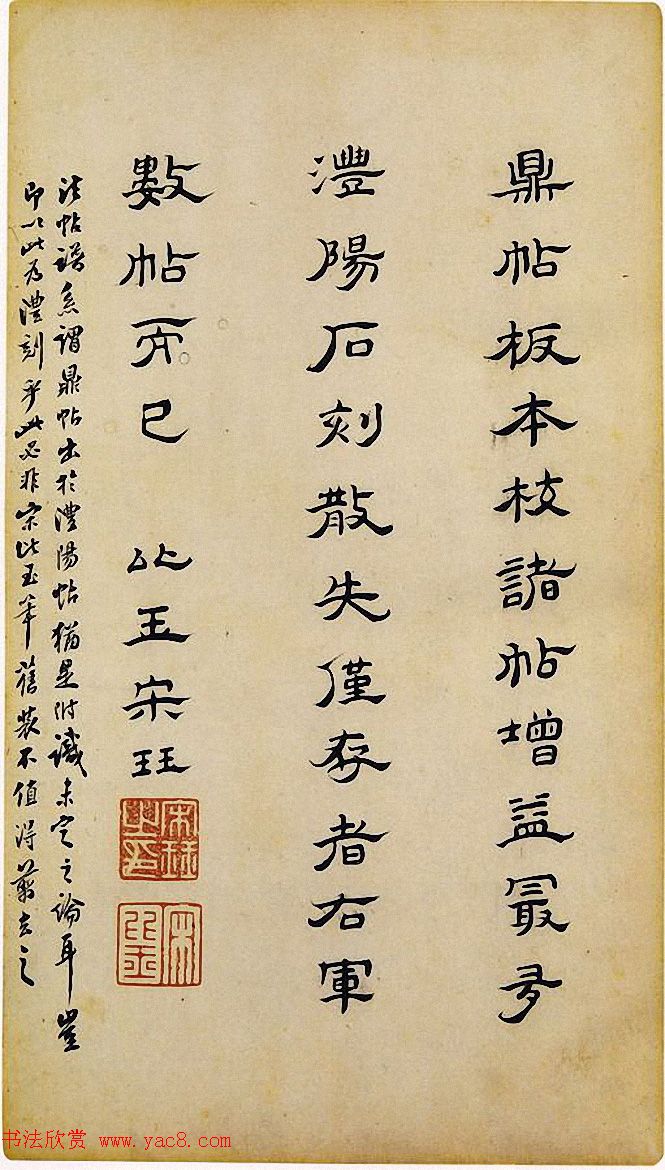 鼎帖板本枝諸帖增益最多
澧陽石刻散失僅存者右軍
數帖而已 比玉宋玨
法帖譜系謂鼎帖出於澧陽帖猶是附識未定之論耳豈
即以此為澧刻乎此必非宋比玉筆舊裝不值得剪去之
宋玨之印
宋比玉
书法欣赏 www.yac8.com